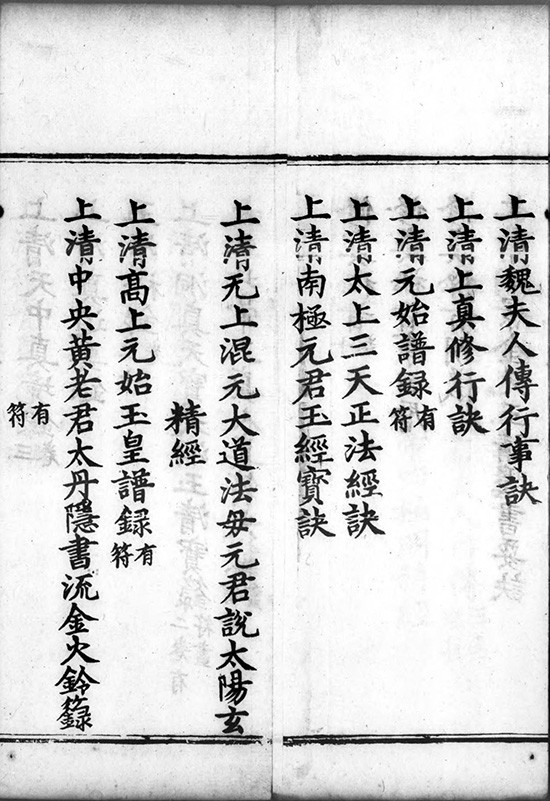 上清魏夫人傳行事訣
上清上真修行訣
上清元始譜録有符
上清太上三天正法經訣
上清南極元君玉經寳訣
上清元上混元大道法毋元君說太陽玄
精經
上清髙上元始玉皇譜録有符
上清中央黄老君太丹隱書流金火鈴録
有符